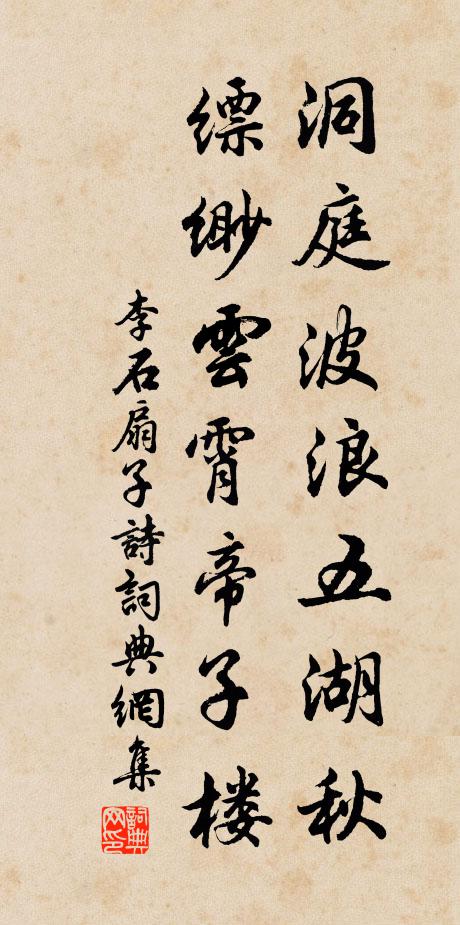 洞庭波浪五湖秋
縹緲雲霄帝子楼
李石扇子詩詞典網集
詞典网印